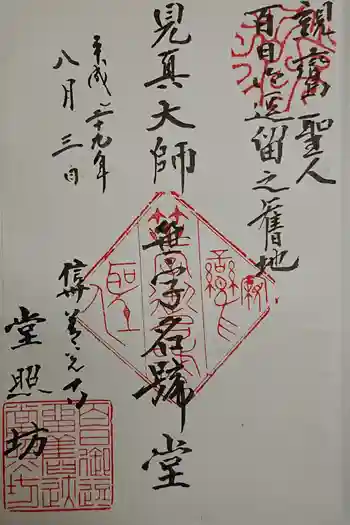 親鸞聖人
百日御逗留之舊地
見真大師
笹字名號堂
平成二十九年
八月三日
信州善光寺
堂照坊